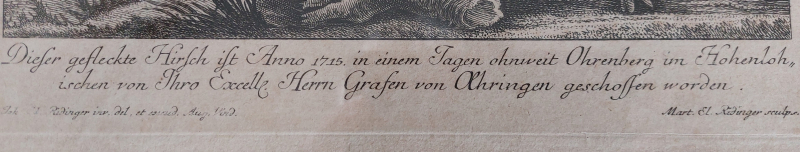 Dieser gefleckte Hirsch ist Anno 1715. in einem Jagen ohnweit Ohrenberg im Hohenloh=
ischen von Ihro Excellz Herrn Grafen von Œhringen geschossen worden.
Joh. El. Ridinger inv. del. et excud. Aug. Vind.
Mart. El. Ridinger sculps.